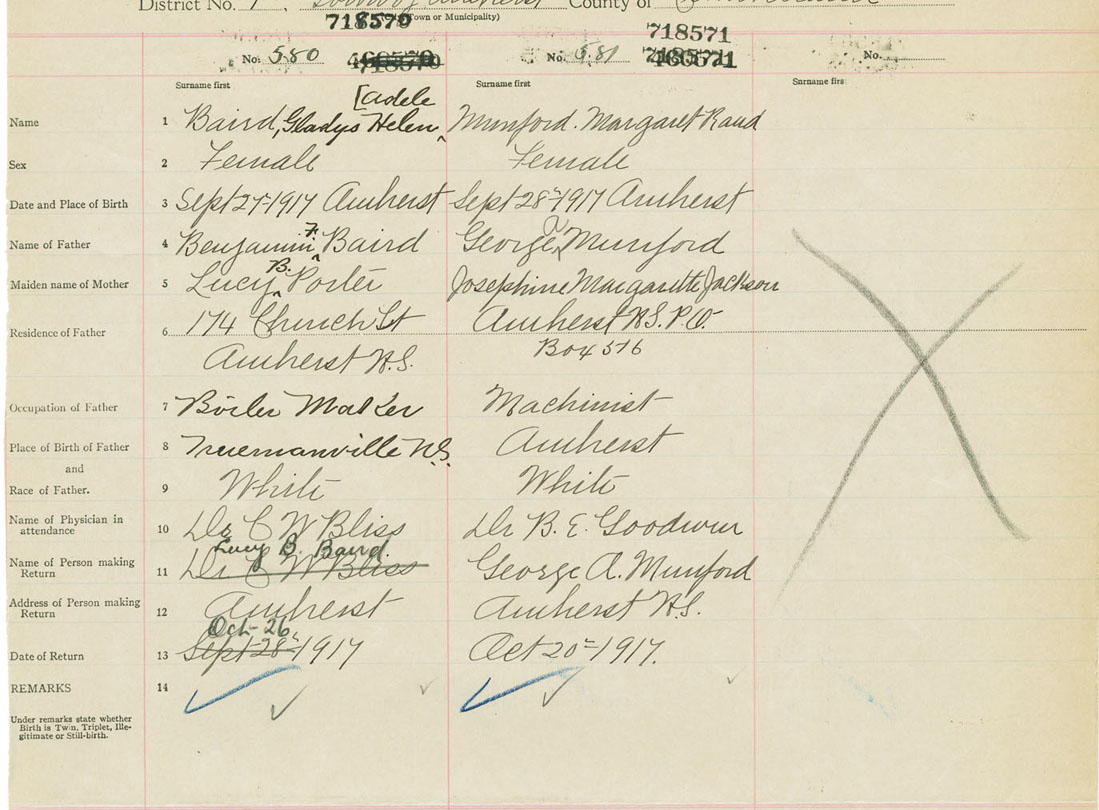 District No. 7, Town of Amherst County of Cumberland
(City, Town or Municipality)
718570 718571
No. 580 No. 581 No.
Surname first Surname first Surname first
[Adele
Name 1 Baird, Gladys Helen ^ Munford. Margaret
Sex 2 Female Female
Date and Place of Birth 3 Sept 27 1917 Amherst Sept 28 1917 Amherst
F A
Name of Father 4 Benjamin ^ Baird George ^ Munford
B.
Maiden name of Mother 5 Lucy ^ Porter Josephine Margarette Jackson
Residence of Father 6 174 Church St Amherst N.S. P.O.
Amherst N.S. Box 516
Occupation of Father 7 Boiler Maker Machinist
Place of Birth of Father 8 Truemanville N.S. Amherst
and
Race of Father. 9 White White
Name of Physician in attendance 10 Dr C W Bliss Dr B. E. Goodwin
Lucy B. Baird.
Name of Person making Return 11 Dr C W Bliss George A. Munford
Address of Person making Return 12 Amherst Amherst N.S.
Oct-26
Date of Return 13 Sept 28 1917 Oct 20 1917.
REMARKS 14
Under remarks state whether
Birth is Twin, Triplet, Ille-
gitimate or Still-birth.